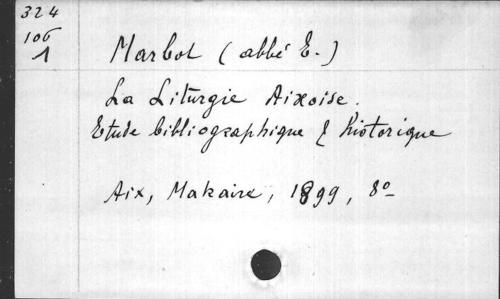 324
106
1
Marbot (abbé E.)
La Liturgie Aixoise.
Etude bibliographique & historique
Aix, Makaire, 1899, 8º